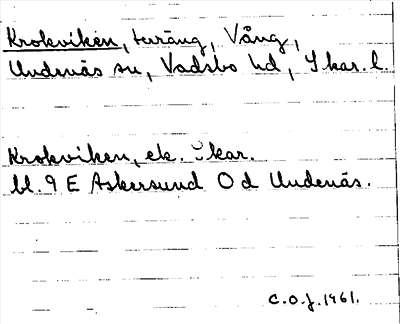 Krokviken, terräng, Vång,
Undenäs sn, Vadsbo hd, Skar. l.
Krokviken, ek. Skar.
bl. 9 E Askersund O d Undenäs.
C.O.J. 1961.